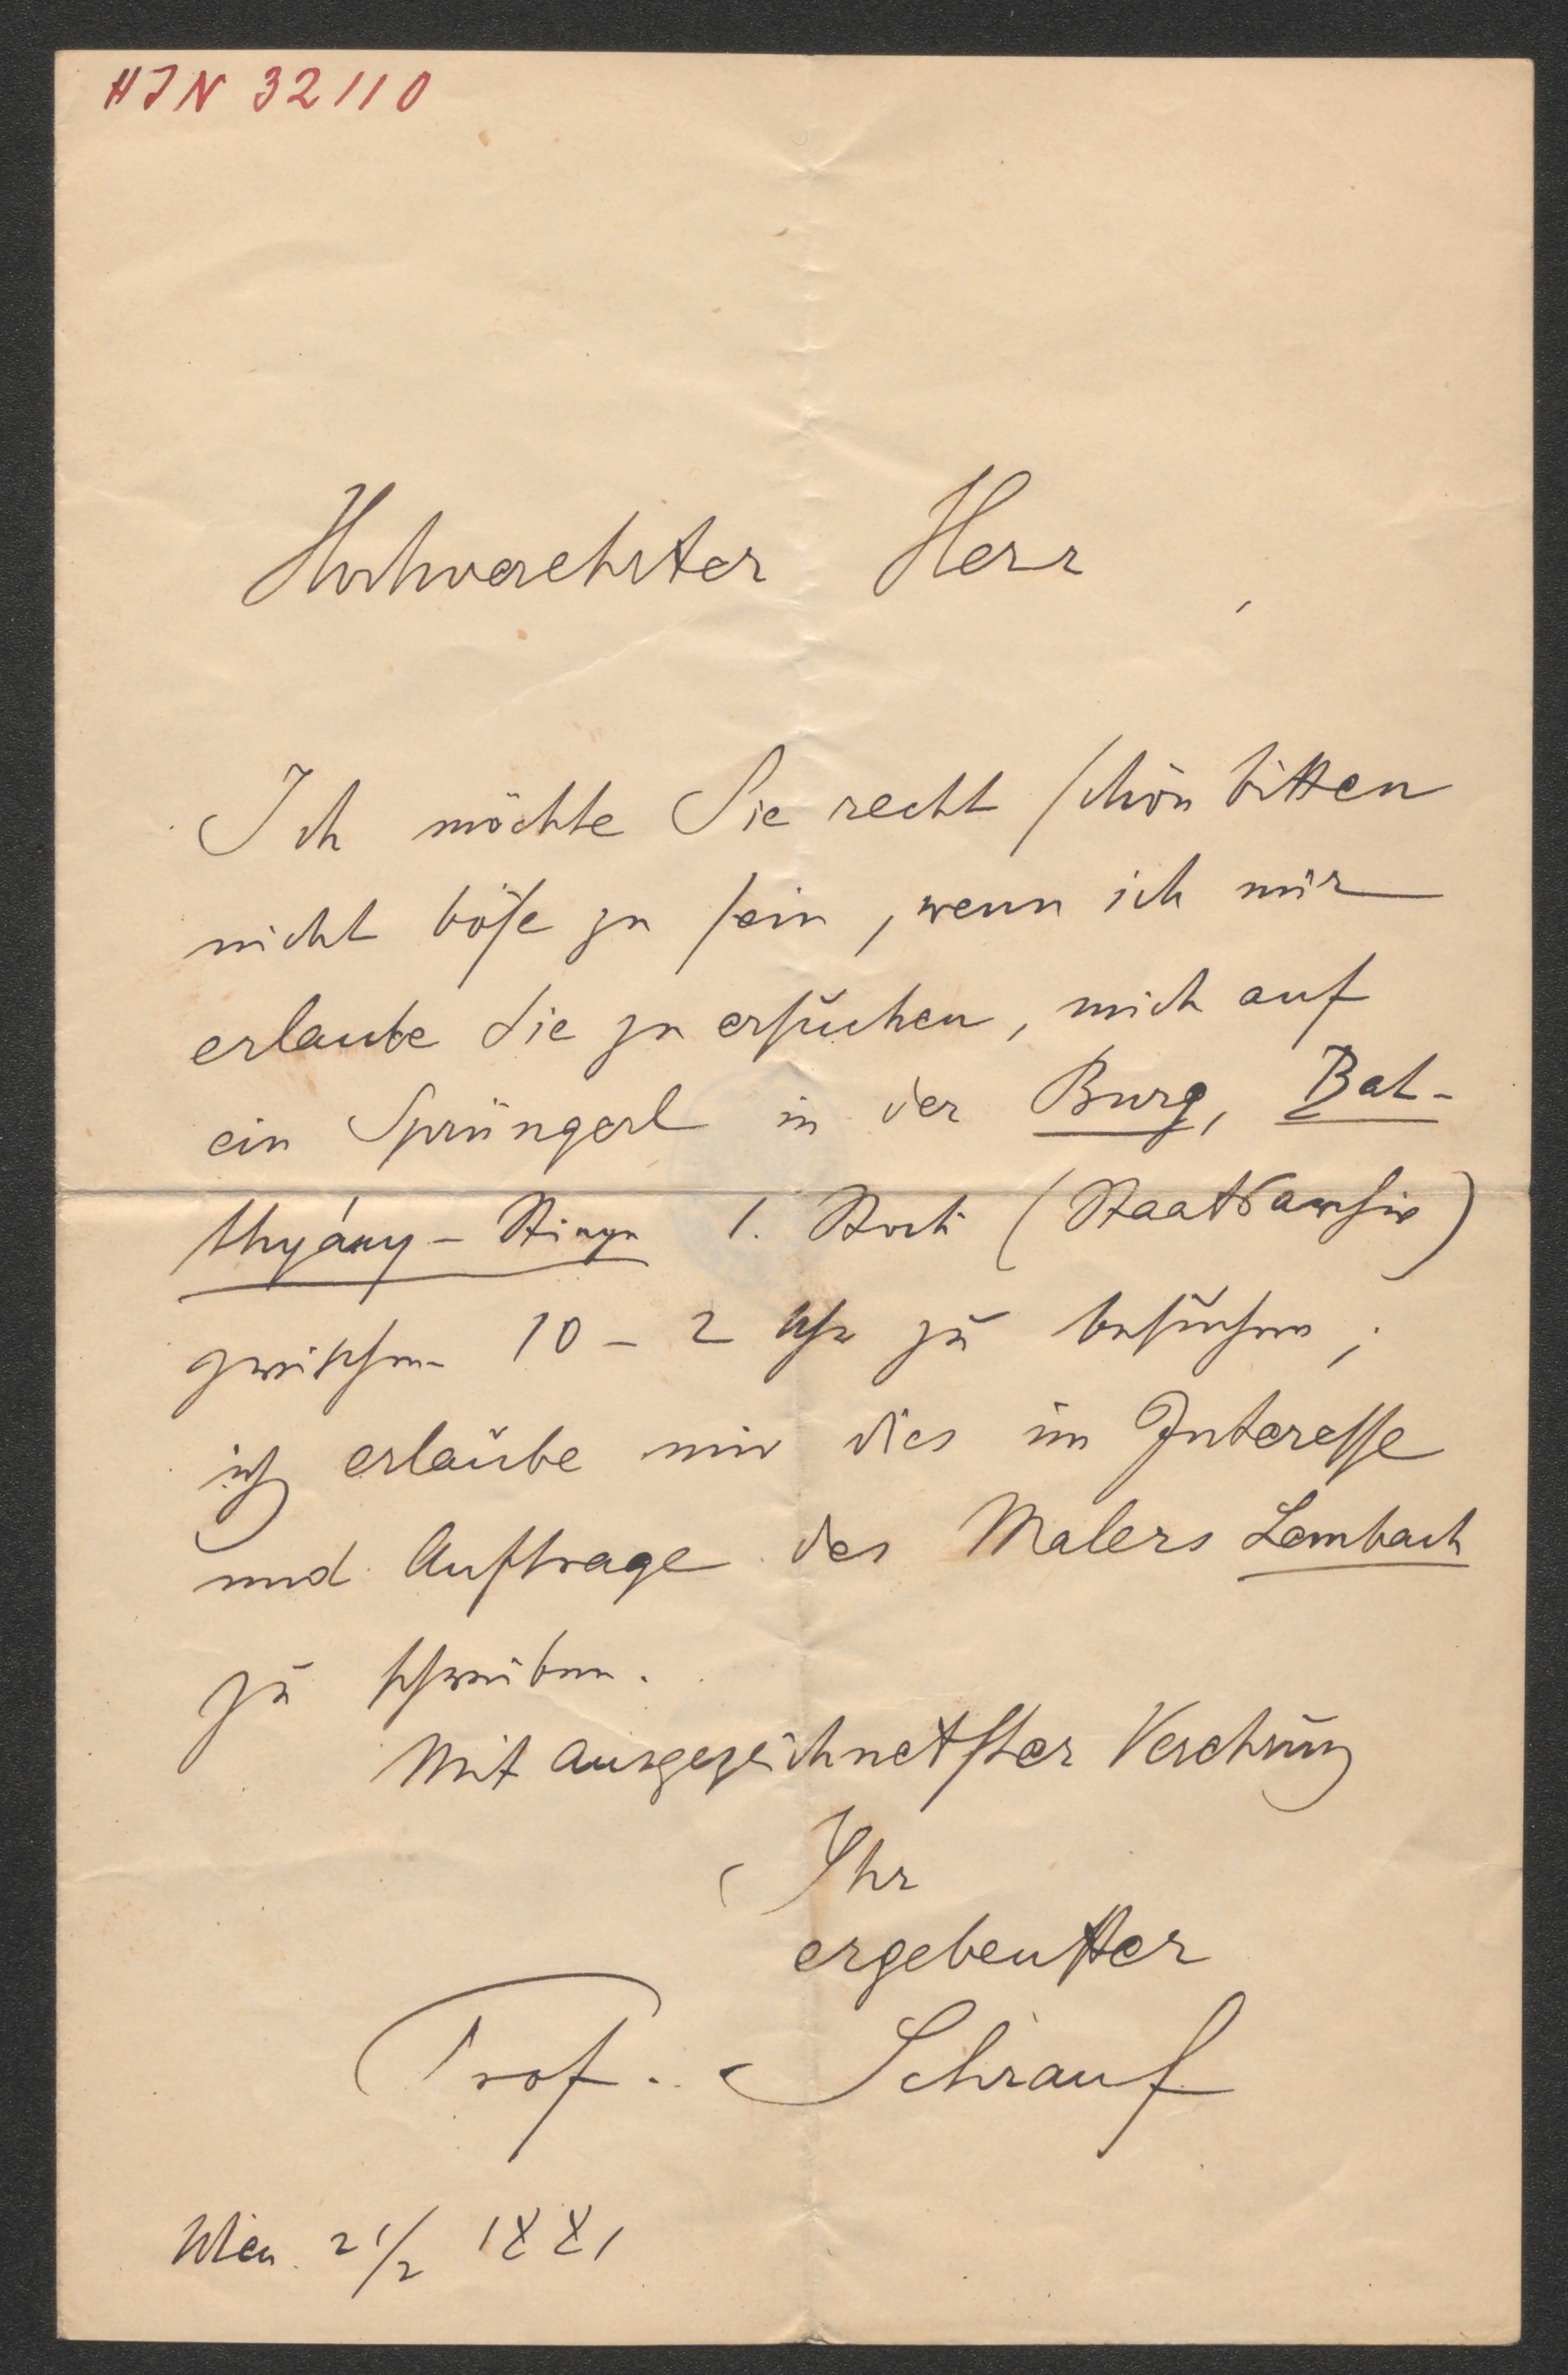 HJN 32110
Hochverehrter Herr,
Ich möchte Sie recht schön bitten
nicht böse zu sein, wenn ich mir
erlaube Sie zu ersuchen, mich auf
ein Sprüngerl in der Burg, Bat-
thyány-Stiege 1. Stock (Staatsarchiv)
zwischen 10 - 2 Uhr zu besuchen;
ich erlaube mir dies im Interesse
und Auftrage des Malers Lembach
zu schreiben.
Mit ausgezeichnetster Verehrung
Ihr
ergebenster
Prof. Schrauf
Wien 21/2 1881